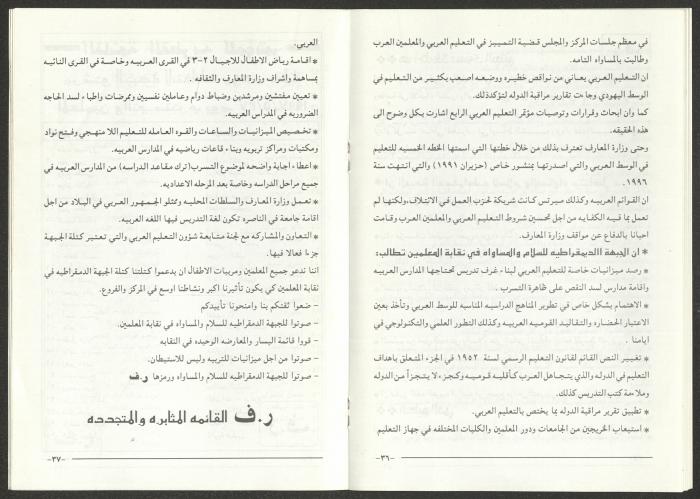 في معظم جلسات المركز والمجلس قضية التمييز في التعليم العربي والمعلمين العرب
وطالبت بالمساواه التامه.
ان التعليم العربي يعاني من نواقص خطيره ووضعه اصعب بكثير من التعليم في
الوسط اليهودي وجاءت تقارير مراقبة الدوله لتؤكد ذلك.
كما وان ابحاث وقرارات وتوصيات مؤتمر التعليم العربي الرابع اشارت بكل وضوح الى
هذه الحقيقه.
وحتى وزارة المعارف تعترف بذلك من خلال خطتها التي اسمتها الخطه الخمسيه للتعليم
في الوسط العربي والتي اصدرتها بمنشور خاص (حزيران ١٩٩١) والتي انتهت سنة
١٩٩٦.
ان القوائم العربيه وكذلك ميرتس كانت شريكة لحزب العمل في الائتلاف، ولكنها لم
تعمل بما فيه الكفايه من اجل تحسين شروط التعليم العربي والمعلمين العرب وقامت
احيانا بالدفاع عن مواقف وزارة المعارف.
* ان الجبهة الديمقراطيه للسلام والمساواه في نقابة المعلمين تطالب:
* رصد ميزانيات خاصة للتعليم العربي لبناء غرف تدريس تحتاجها المدارس العربيه
واقامة مدارس لسد النقص على ظاهرة التسرب.
* الاهتمام بشكل خاص في تطوير المناهج الدراسيه المناسبه للوسط العربي وتأخذ بعين
الاعتبار الحضاره والتقاليد القوميه العربيه وكذلك التطور العلمي والتكنولوجي في
ايامنا .
* تغيير النص القائم لقانون التعليم الرسمي لسنة ١٩٥٢ في الجزء المتعلق باهداف
التعليم في الدوله والذي يتجاهل العرب كأقليه قوميه وكجزء لا يتجزأ من الدوله
وملاءمة كتب التدريس كذلك.
* تطبيق تقرير مراقبة الدوله بما يختص بالتعليم العربي.
* استيعاب الخريجين من الجامعات ودور المعلمين والكليات المختلفه في جهاز التعليم
-٣٦-
العربي.
* اقامة رياض الاطفال للاجيال ٢-٣ في القرى العربيه وخاصة في القرى النائيه
بمساهمة واشراف وزارة المعارف والثقافه .
* تعيين مفتشين ومرشدين وضباط دوام وعاملين نفسيين وممرضات واطباء لسد الحاجه
الضروريه في المدارس العربيه.
* تخصيص الميزانيات والساعات والقوه العامله للتعليم اللامنهجي وفتح نواد
ومكتبات ومراكز تربويه وبناء قاعات رياضيه في المدارس العربيه.
* اعطاء اجابة واضحه لموضوع التسرب (ترك مقاعد الدراسه) من المدارس العربيه في
جميع مراحل الدراسه وخاصة بعد المرحله الاعداديه.
* تعمل وزارة المعارف والسلطات المحليه وممثلو الجمهور العربي في البلاد من اجل
اقامة جامعة في الناصره تكون لغة التدريس فيها اللغه العربيه.
* التعاون والمشاركه مع لجنة متابعة شؤون التعليم العربي والتي تعتبر كتلة الجبهة
جزءا فعالا فيها.
اننا ندعو جميع المعلمين ومربيات الاطفال ان يدعموا كتلتنا كتلة الجبهة الدمقراطيه في
نقابة المعلمين كي يكون تأثيرنا اكبر ونشاطنا اوسع في المركز والفروع.
- ضعوا ثقتكم بنا وامنحونا تأييدكم
- صوتوا للجبهة الدمقراطيه للسلام والمساواه في نقابة المعلمين.
- قووا قائمة اليسار والمعارضه الوحيده في النقابه
- صوتوا من اجل ميزانيات للتربيه وليس للاستيطان.
- صوتوا للجبهة الدمقراطيه للسلام والمساواه ورمزها ر.ف
ر.ف القائمه المثابره والمتجدده
-٣٧-